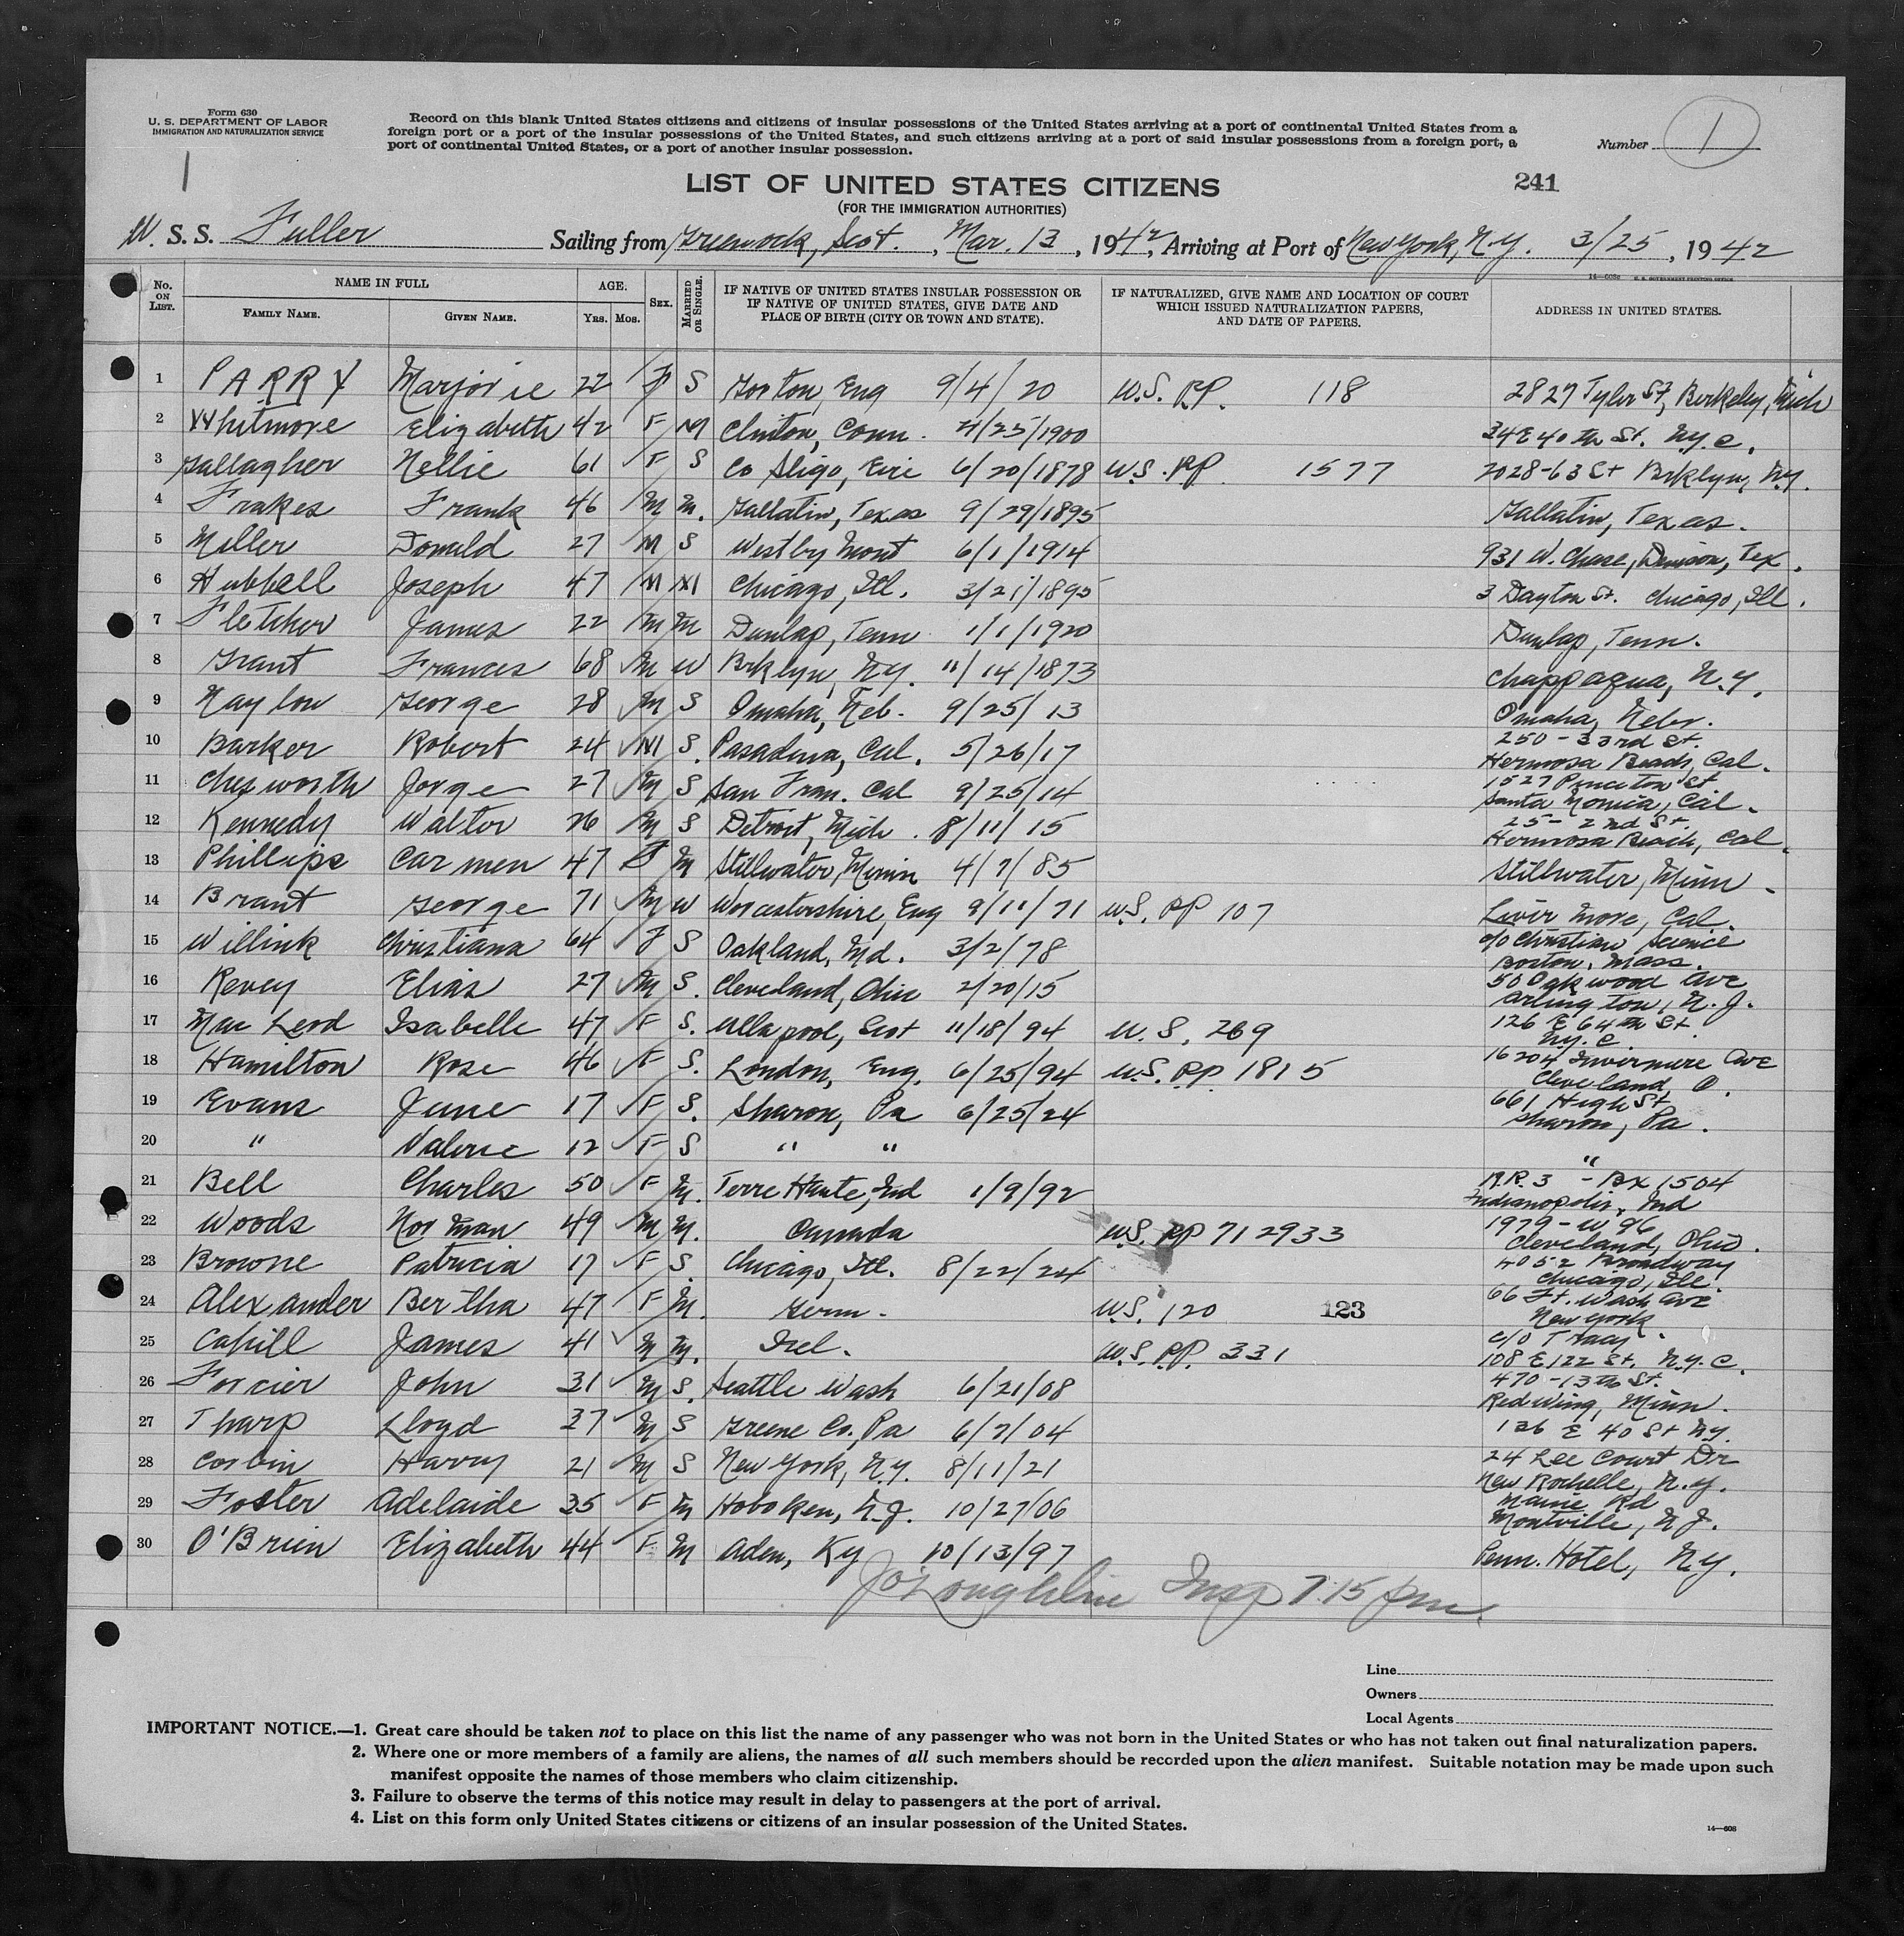 Form 630
U. S. DEPARTMENT OF LABOR
IMMIGRATION AND NATURALIZATION SERVICE
1
Record on this blank United States citizens and citizens of insular possessions of the United States arriving at a port of continental United States from a
foreign port or a port of the insular possessions of the United States, and such citizens arriving at a port of said insular possessions from a foreign port, a
port of continental United States, or a port of another insular possession.
Number 1
LIST OF UNITED STATES CITIZENS
241
(FOR THE IMMIGRATION AUTHORITIES)
U. S. S. Fuller Sailing from Greenock, Scot., Mar. 13, 1942, Arriving at Port of New York, N.Y. 3/25, 1942
14—608a U. S. GOVERNMENT PRINTING OFFICE
No. ON LIST. NAME IN FULL FAMILY NAME. GIVEN NAME. AGE. Yrs. Mos. SEX. MARRIED OR SINGLE. IF NATIVE OF UNITED STATES INSULAR POSSESSION OR IF NATIVE OF UNITED STATES, GIVE DATE AND PLACE OF BIRTH (CITY OR TOWN AND STATE). IF NATURALIZED, GIVE NAME AND LOCATION OF COURT WHICH ISSUED NATURALIZATION PAPERS, AND DATE OF PAPERS. ADDRESS IN UNITED STATES.
1 PARRY Marjorie 22 F S Gorton, Eng 9/4/20 U.S. PP. 118 2827 Tyler St, Berkeley, Mich
2 Whitmore Elizabeth 42 F M Clinton, Conn. 4/25/1900 34 E 40th St. N.Y.C.
3 Gallagher Nellie 61 F S Co Sligo, Eire 6/20/1878 U.S. PP 1577 2028-63 St Brklyn, N.Y.
4 Frakes Frank 46 M M. Gallatin, Texas 9/29/1895 Gallatin, Texas.
5 Miller Donald 27 M S Westby Mont 6/1/1914 931 W. Chase, Denison, Tex.
6 Hubbell Joseph 47 M M Chicago, Ill. 3/21/1895 3 Dayton St. Chicago, Ill.
7 Fletcher James 22 M M Dunlap, Tenn 1/1/1920 Dunlap, Tenn.
8 Grant Frances 68 M W Brklyn, N.Y. 11/14/1873 Chappaqua, N.Y.
9 Naylow George 28 M S Omaha, Neb. 9/25/13 Omaha, Nebr.
10 Barker Robert 24 M S. Pasadena, Cal. 5/26/17 250-33rd St. Hermosa Beach, Cal.
11 Chesworth Jorge 27 M S San Fran. Cal 9/25/14 1527 Princeton St Santa Monica, Cal.
12 Kennedy Walter 26 M S Detroit, Mich. 8/11/15 25-2nd St. Hermosa Beach, Cal.
13 Phillips Carmen 47 F M Stillwater, Minn 4/7/85 Stillwater, Minn
14 Brant George 71 M W Worcestershire, Eng 9/11/71 U.S. PP 107 Liver more, Cal.
15 Willink Christiana 64 F S Oakland, Md. 3/2/78 c/o Christian Science Boston, Mass.
16 Revey Elias 27 M S. Cleveland, Ohio 2/20/15 50 Oakwood Ave Arlington, N.J.
17 Mac Leod Isabelle 47 F S. Ullapool, Scot 11/18/94 U.S. 269 126 E 64th St N.Y.C.
18 Hamilton Rose 46 F S. London, Eng. 6/25/94 U.S. PP. 1815 16204 Invermere Ave Cleveland, O.
19 Evans June 17 F S. Sharon, Pa 6/25/24 661 High St Sharon, Pa.
20 " Valerie 12 F S " " "
21 Bell Charles 50 F M. Terre Haute, Ind 1/9/92 R.R. 3 - Bx 1504 Indianapolis, Ind
22 Woods Norman 49 M M. Canada U.S. PP 712933 1979-W 96 Cleveland, Ohio.
23 Browne Patricia 17 F S. Chicago, Ill. 8/22/24 4052 Broadway Chicago, Ill.
24 Alexander Bertha 47 F M. Germ. U.S. 120 123 66 Ft. Wash Ave New York
25 Cahill James 41 M M. Irel. U.S. PP. 331 c/o Tracy 108 E 122 St. N.Y.C.
26 Forcier John 31 M S. Seattle Wash 6/21/08 470-13th St. Red Wing, Minn.
27 Tharp Lloyd 37 M S Greene Co. Pa 6/7/04 136 E 40 St N.Y.
28 Corbin Harry 21 M S New York, N.Y. 8/11/21 24 Lee Court Dr New Rochelle, N.Y.
29 Foster Adelaide 35 F M Hoboken, N.J. 10/27/06 Rd Montville, N.J.
30 O'Brien Elizabeth 44 F M Aden, Ky 10/13/97 Penn. Hotel, N.Y.
J O'Loughlin Insp 7:15 pm.
Line
Owners
Local Agents
IMPORTANT NOTICE.—1. Great care should be taken not to place on this list the name of any passenger who was not born in the United States or who has not taken out final naturalization papers.
2. Where one or more members of a family are aliens, the names of all such members should be recorded upon the alien manifest. Suitable notation may be made upon such
manifest opposite the names of those members who claim citizenship.
3. Failure to observe the terms of this notice may result in delay to passengers at the port of arrival.
4. List on this form only United States citizens or citizens of an insular possession of the United States.
14—608